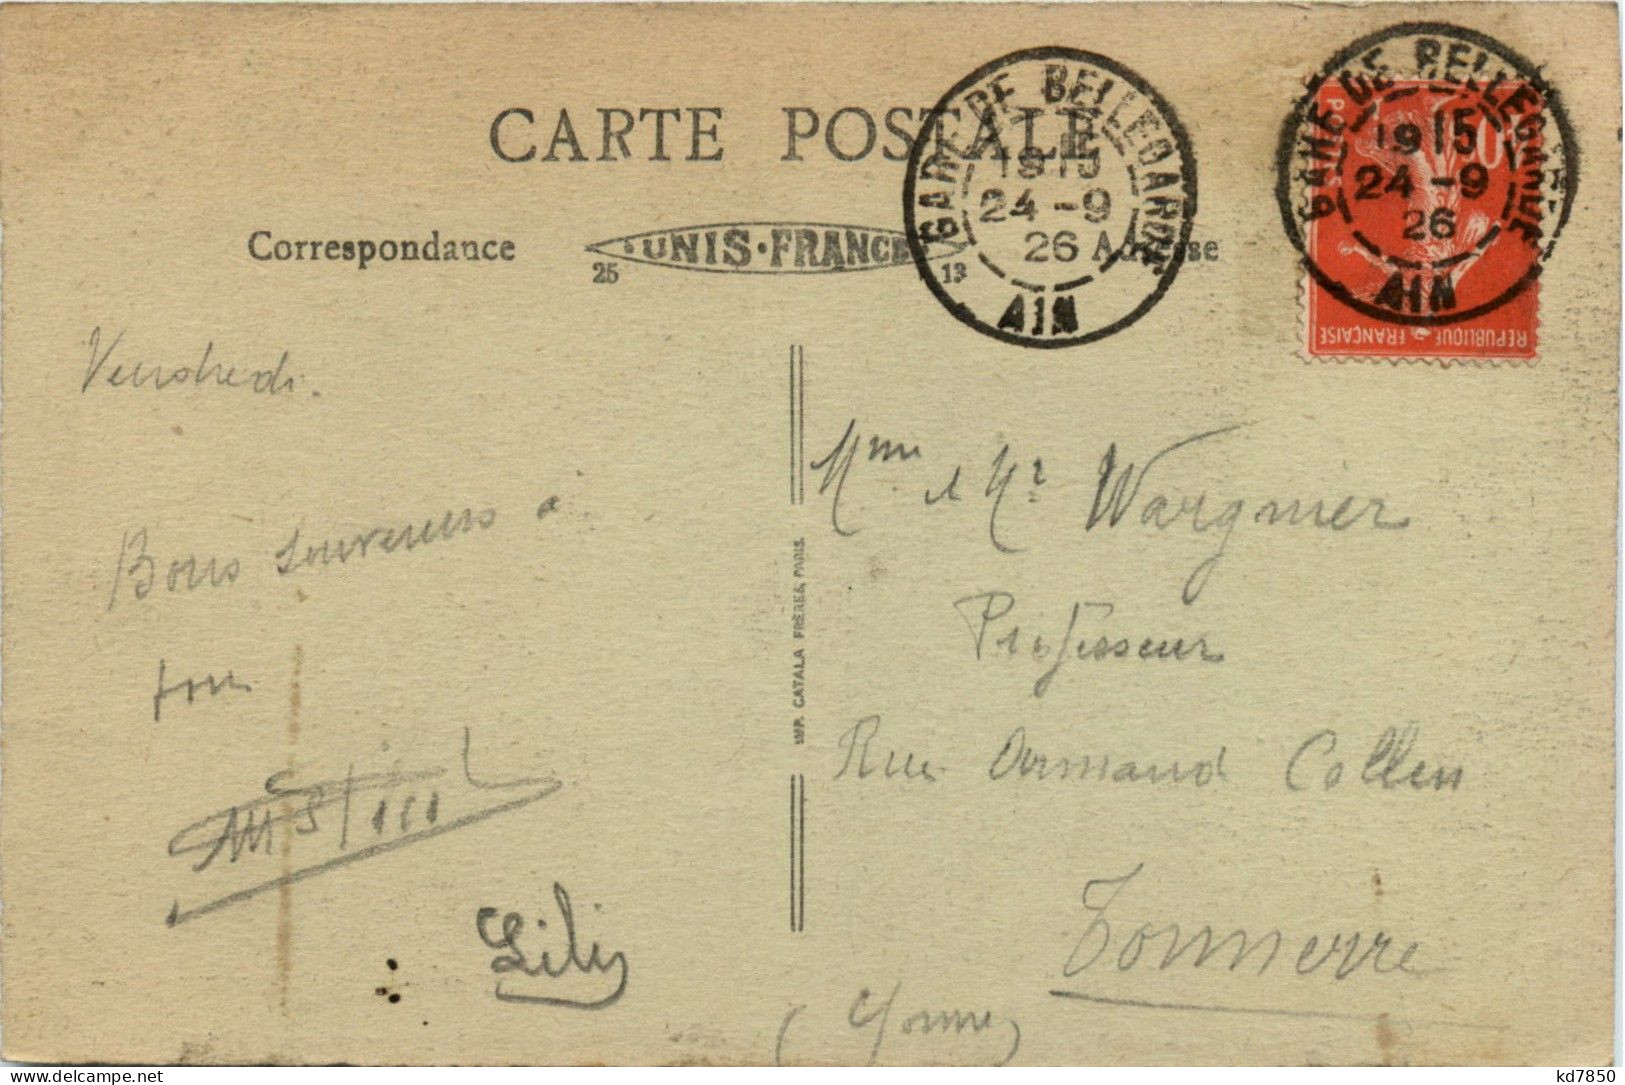 CARTE POSTALE
GARE DE BELLEGARDE
19 15
24 -9
26
AIN
GARE DE BELLEGARDE
19 15
24 -9
26
AIN
POSTES
10
REPUBLIQUE FRANÇAISE
Correspondance
·UNIS·FRANCE
25
13
Adresse
Vendredi.
Bons souvenirs à
tous
Lily
IMP. CATALA FRÈRES, PARIS.
Mme & Mr Wargnier
Professeur
Rue Armand Collin
Tonnerre
(Yonne)
Delcampe.net
kd7850